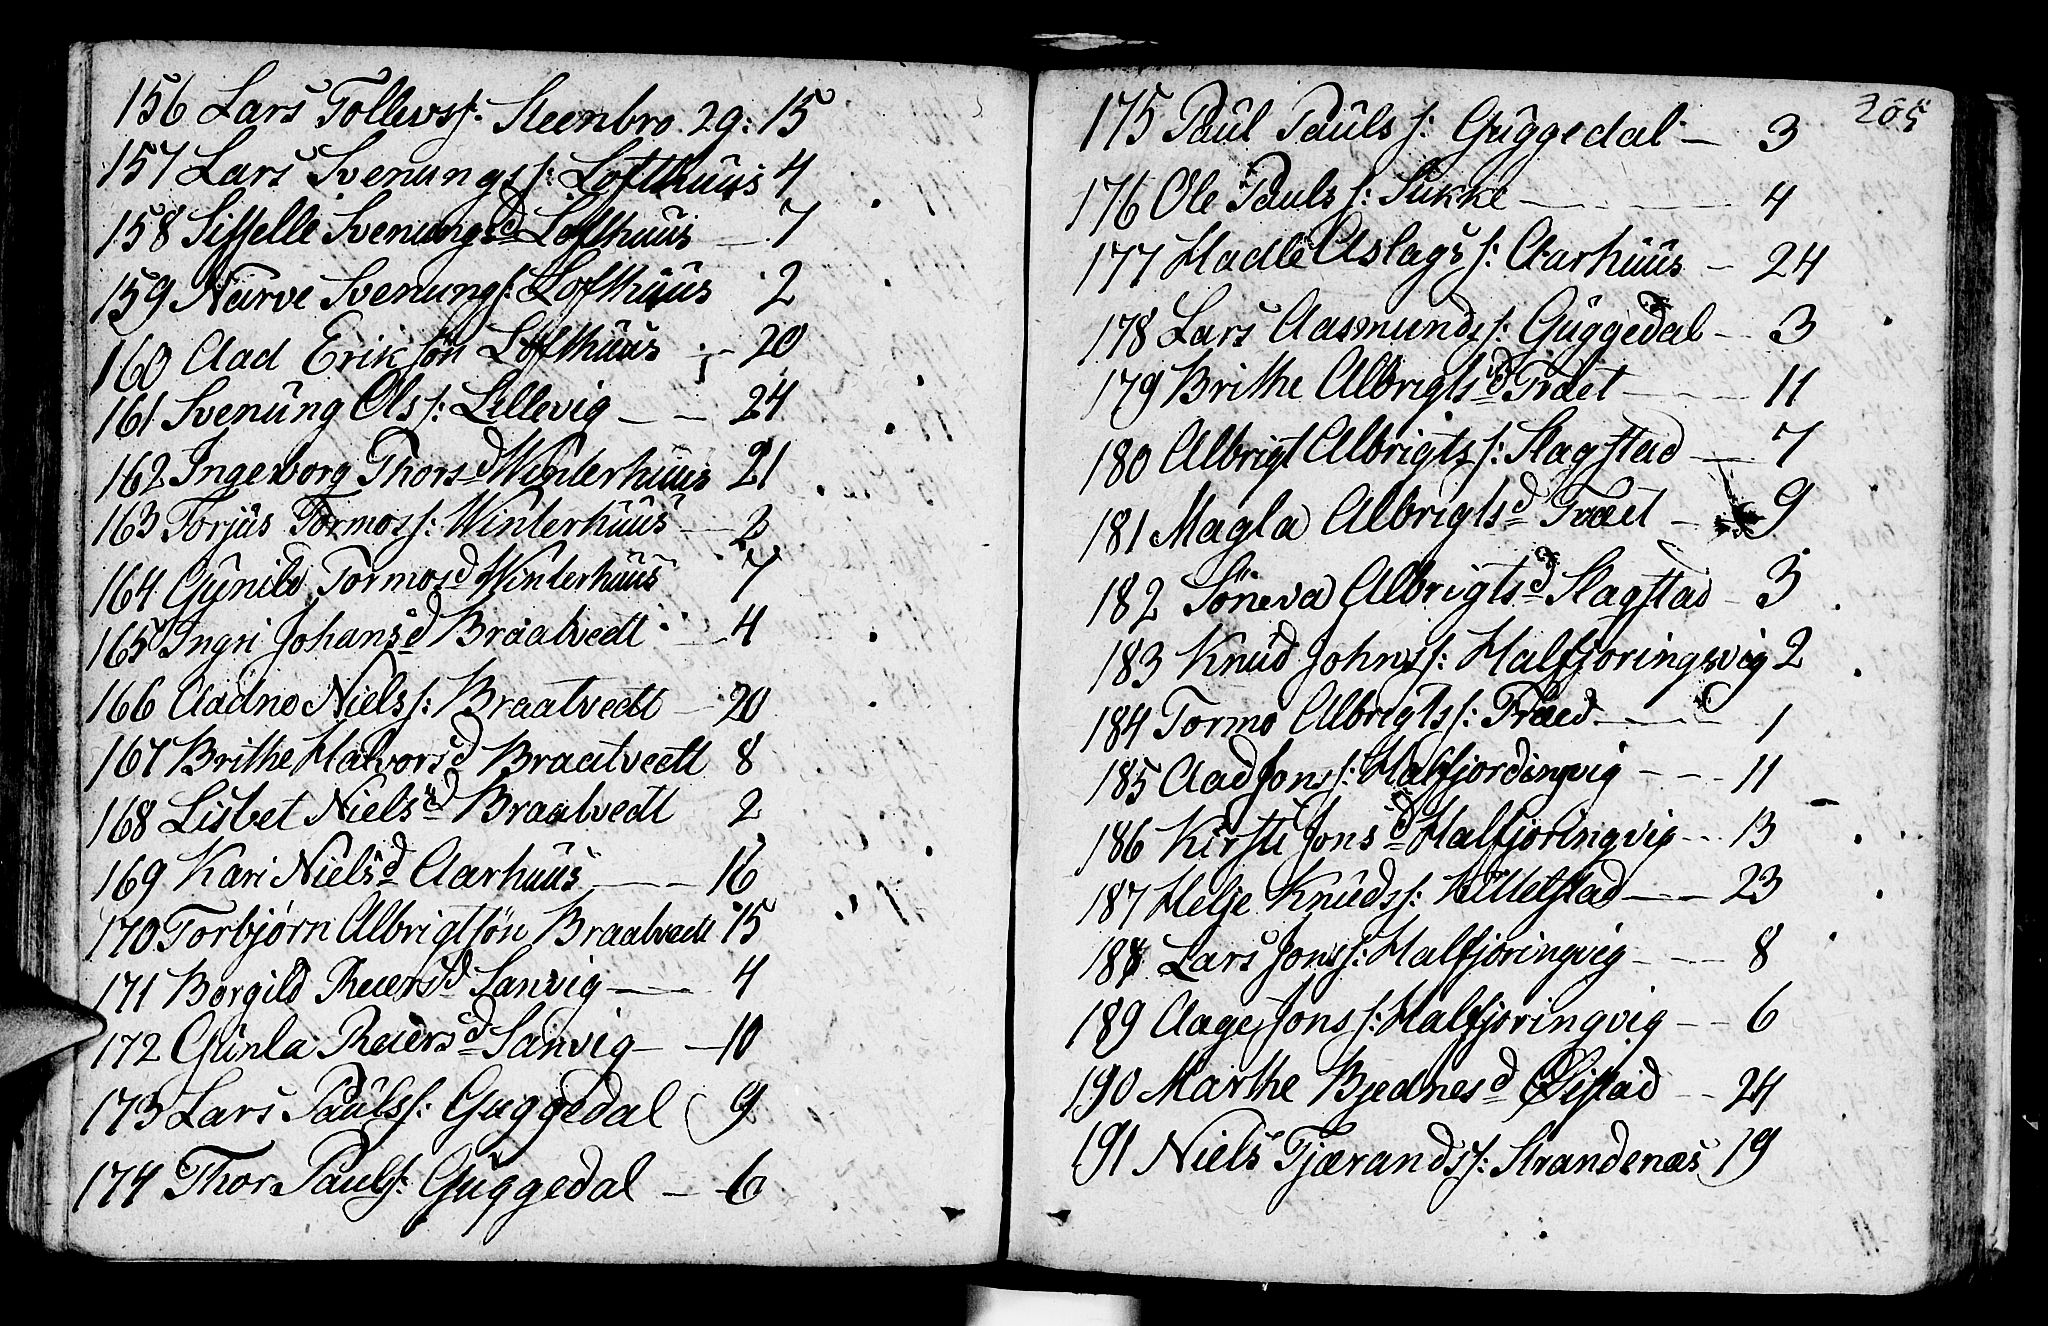 156 Lars Tollevsf: Steenbro 29: 15
157 Lars Svenungsf: Lofthuus 4
158 Siffelle Svenungsd Lofthuus — 7
159 Narve Svenungf: Lofthuus 2
160 Aad Erikføn Lofthuus — 20
161 Svenung Olsf: Lillevig — — 24
162 Ingeborg Thorsd Winterhuus 21
163 Torjus Tormosf: Winterhuus — 2
164 Gunild Tormosd Winterhuus 7
165 Ingri Johansd Braatvedt — 4
166 Aadne Nielsf: Braatvedt — 20
167 Brithe Halvorsd Braatvedt 8
168 Lisbet Nielsd Braatvedt 2
169 Kari Nielsd Aarhuus — — 16
170 Torbjørn Albrigtføn Braatvedt 15
171 Borgild Reiersd Sanvig — — 4
172 Gunla Reiersd Sanvig — — 10
173 Lars Paulsf: Guggedal 9
174 Thor Paulsf: Guggedal — — 6
205
175 Paul Paulsf: Guggedal — 3
176 Ole Paulsf: Sukke — — — 4
177 Hadle Aslagsf: Aarhuus — 24
178 Lars Aasmundsf: Guggedal — 3
179 Brithe Albrigtsd Træet — — 11
180 Albrigt Albrigtsf: Slagstad — 7
181 Magla Albrigtsd Træet — 9
182 Søneva Albrigtsd Slagstad — 3
183 Knud Johnsf: Halfjoringsvig 2
184 Tormo Albrigtsf: Træed — — 1
185 Aad Jonsf: Halfjordingvig — — 11
186 Kirsti Jonsd Halfjoringvig — — 13
187 Helje Knudsf: Hillestad — — 23
188 Lars Jonsf: Halfjoringvig — — 8
189 Aage Jonsf: Halfjoringvig — — 6
190 Marthe Bjednesd Øistad — — 24
191 Niels Tjærandsf: Strandenæs 19